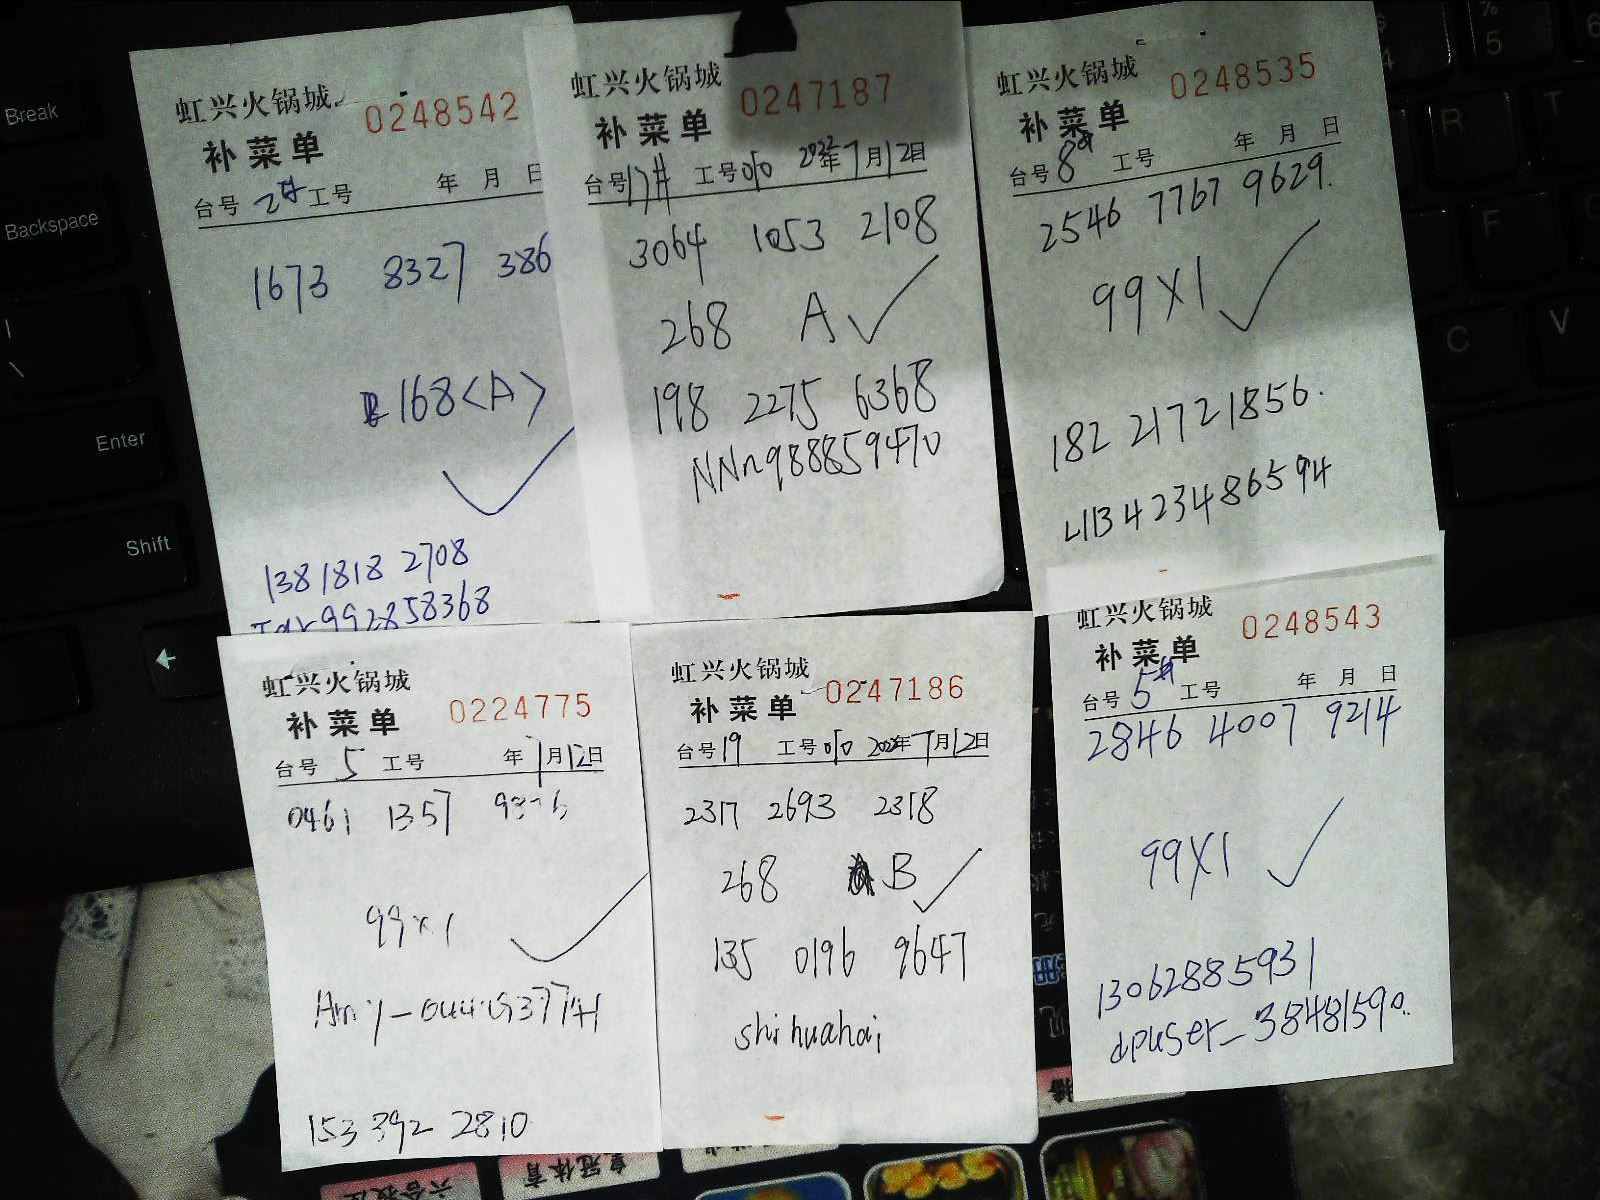 虹兴火锅城 0248542
补菜单
台号 2# 工号 年 月 日
1673 8327 386
168<A>
1381818 2708
992858368
虹兴火锅城 0247187
补菜单
台号 17# 工号 010 2022年7月12日
3064 1053 2108
268 A
198 2275 6368
NNn988859470
虹兴火锅城 0248535
补菜单
台号 8# 工号 年 月 日
2546 7767 9629.
99X1
182 21721856.
L113423486594
虹兴火锅城 0224775
补菜单
台号 5 工号 年7月12日
0461 1357
99x1
153 392 2810
虹兴火锅城 0247186
补菜单
台号 19 工号 010 年7月12日
2317 2693 2318
268 B
135 0196 9647
shihuahai
虹兴火锅城 0248543
补菜单
台号 5# 工号 年 月 日
2846 4007 9214
99X1
13062885931
dpuser_38481590..
Break
Backspace
|
\
Enter
Shift
%
5
R
T
F
C
V
六合投注
皇冠体育